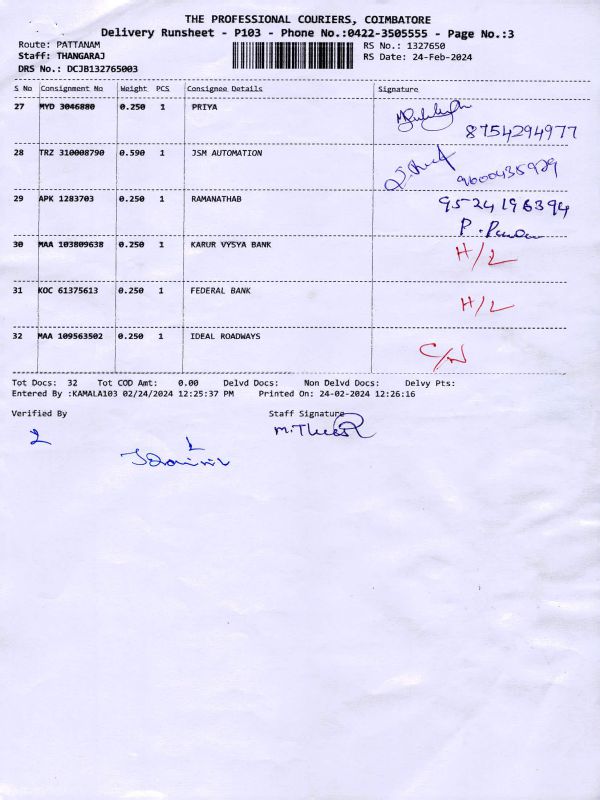 THE PROFESSIONAL COURIERS, COIMBATORE
Delivery Runsheet - P103 - Phone No.:0422-3505555 - Page No.:3
Route: PATTANAM RS No.: 1327650
Staff: THANGARAJ RS Date: 24-Feb-2024
DRS No.: DCJB132765003
S No Consignment No Weight PCS Consignee Details Signature
27 MYD 3046880 0.250 1 PRIYA
8754294977
28 TRZ 310008790 0.590 1 JSM AUTOMATION
9600435929
29 APK 1283703 0.250 1 RAMANATHAB 95-24196394
P.
30 MAA 103809638 0.250 1 KARUR VYSYA BANK H/L
31 KOC 61375613 0.250 1 FEDERAL BANK H/L
32 MAA 109563502 0.250 1 IDEAL ROADWAYS C/N
Tot Docs: 32 Tot COD Amt: 0.00 Delvd Docs: Non Delvd Docs: Delvy Pts:
Entered By :KAMALA103 02/24/2024 12:25:37 PM Printed On: 24-02-2024 12:26:16
Verified By Staff Signature
2